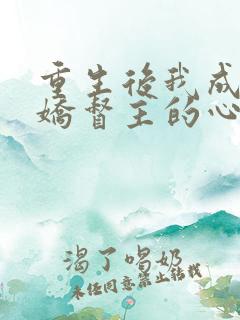 重生后我成
娇督主的心
渴了喝奶
未经同意禁止转载